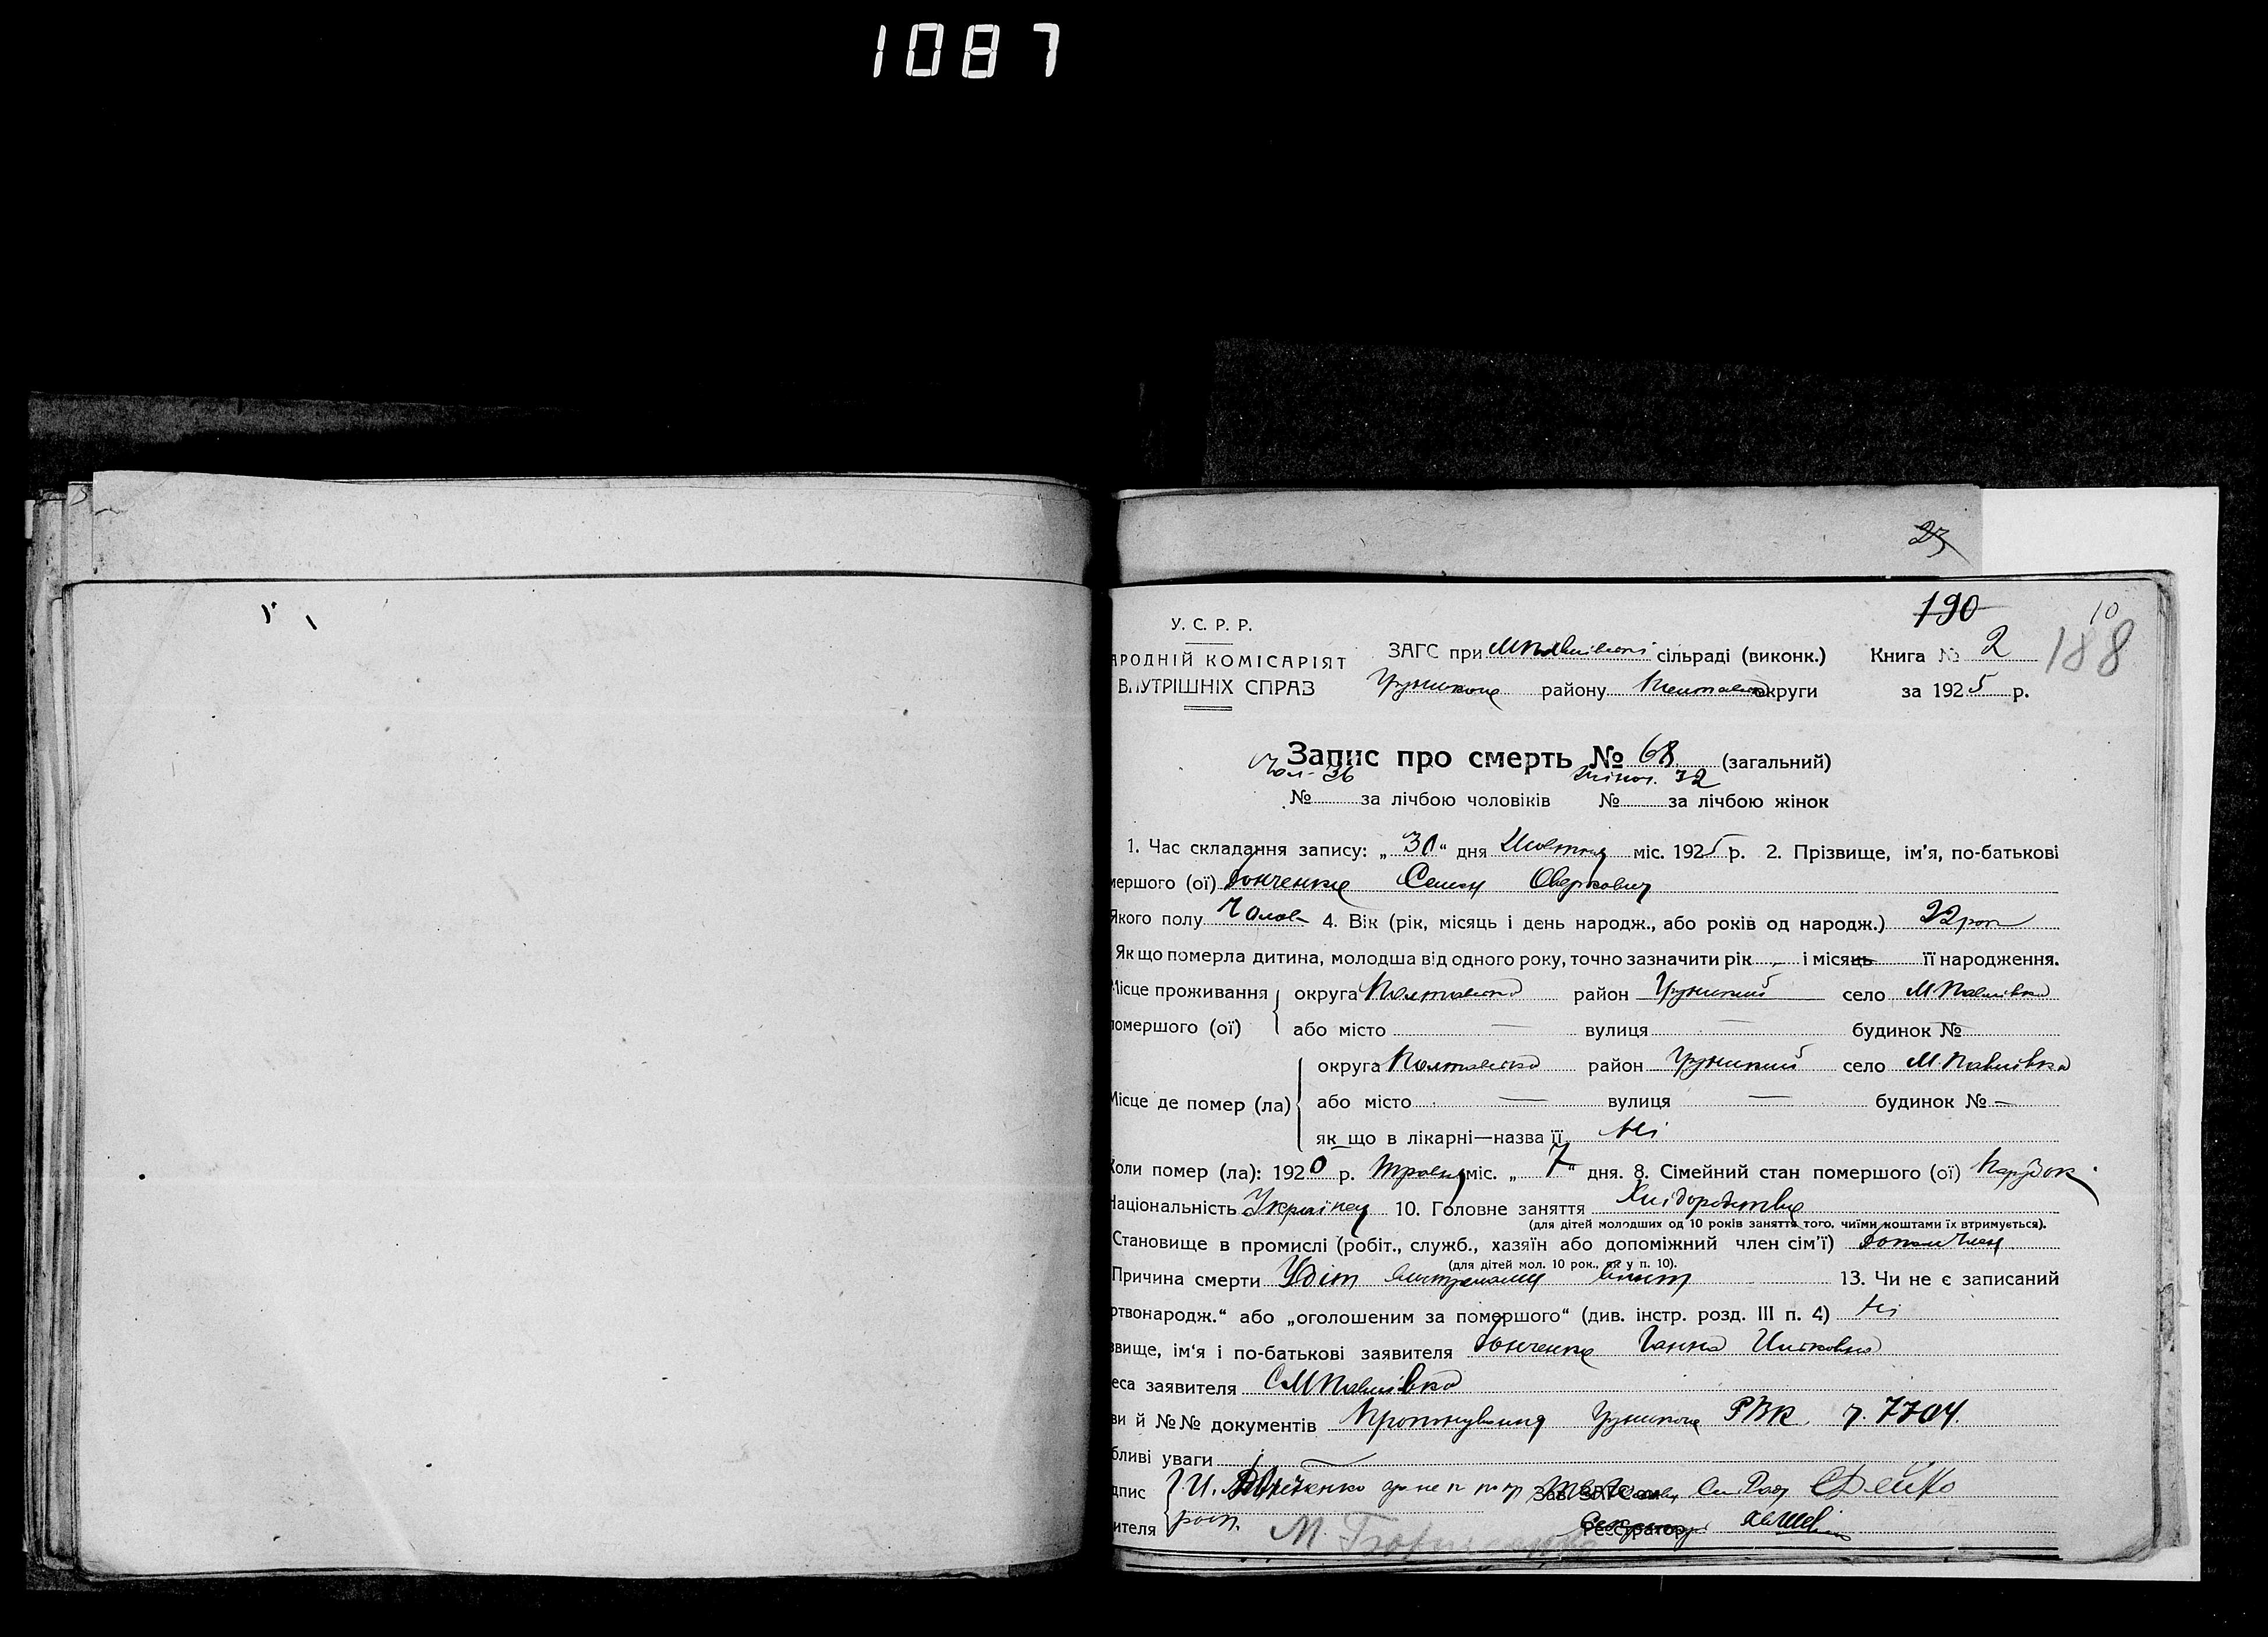 1087
23
190
10
188
У. С. Р. Р.
АРОДНІЙ КОМІСАРІЯТ
ВНУТРІШНІХ СПРАВ
ЗАГС при сільраді (виконк.) Книга № 2
району округи за 1925 р.
Запис про смерть № 68 (загальний)
Чол. 36 Жіноч. 32
№ за лічбою чоловіків № за лічбою жінок
1. Час складання запису: „30“ дня Жовтня міс. 1925 р. 2. Прізвище, ім'я, по-батькові
мершого (ої) Семен Оверкович
Якого полу Чолов 4. Вік (рік, місяць і день народж., або років од народж.) 22 рок
Якщо померла дитина, молодша від одного року, точно зазначити рік і місяць її народження.
Місце проживання округа Полтавська район Грунський село М Павлівка
помершого (ої) або місто — вулиця — будинок №
округа Полтавська район Грунський село М. Павлівка
Місце де помер (ла) або місто — вулиця — будинок № —
як що в лікарні—назва її Ні
Коли помер (ла): 1920 р. Травня міс. „7“ дня. 8. Сімейний стан помершого (ої) Парубок
Національність Українец 10. Головне заняття Хліборобство
(для дітей молодших од 10 років заняття того, чиїми коштами їх втримується).
Становище в промислі (робіт., служб., хазяїн або допоміжний член сім'ї) допом член
(для дітей мол. 10 рок., як у п. 10).
Причина смерти Убіт 13. Чи не є записаний
ртвонародж.“ або „оголошеним за помершого“ (див. інстр. розд. III п. 4) Ні
звище, ім'я і по-батькові заявителя Ганна
еса заявителя С М Павлівка
ви й №№ документів РВК ч. 7704
бливі уваги —
дпис Зав. ЗАГС'ом
ителя Реєстратор